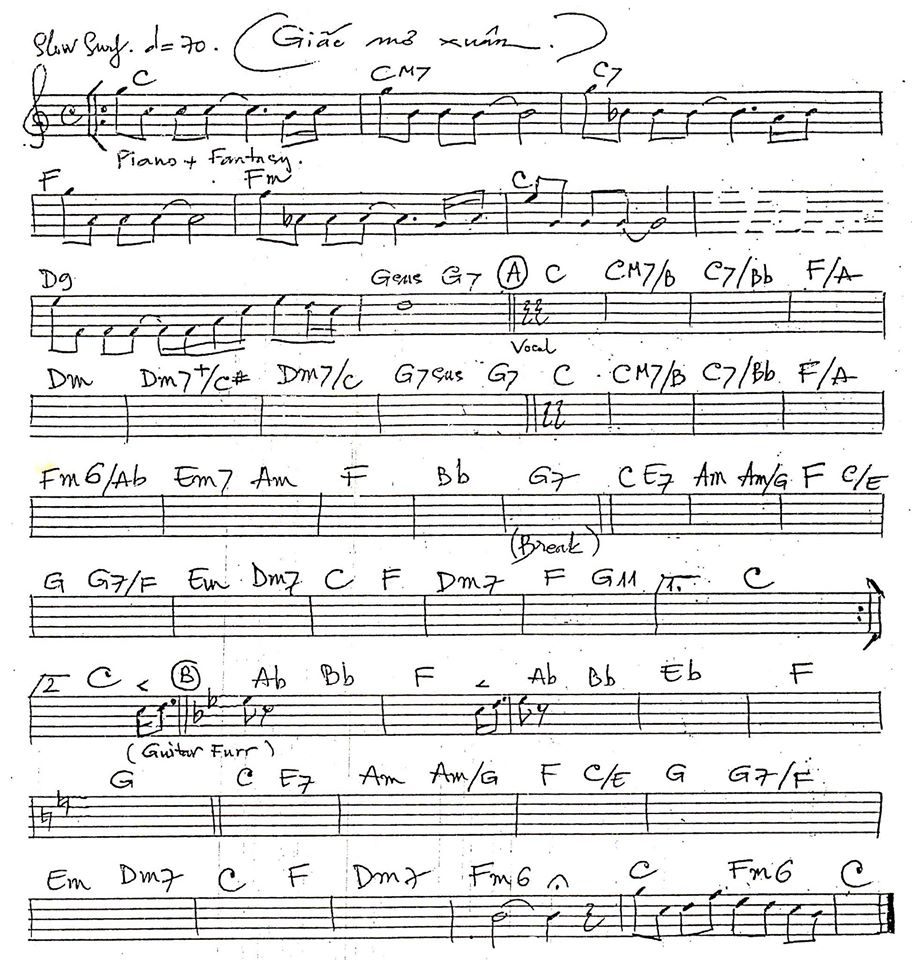 Slow Surf. d=70. (Giấc mơ xuân.)
C CM7 C7
Piano + Fantasy.
F Fm C
D9 Gsus G7 A C CM7/B C7/Bb F/A
Vocal
Dm Dm7+/C# Dm7/C G7sus G7 C CM7/B C7/Bb F/A
Fm6/Ab Em7 Am F Bb G7 C E7 Am Am/G F C/E
(Break)
G G7/F Em Dm7 C F Dm7 F G11 1. C
2 C B Ab Bb F Ab Bb Eb F
(Guitar Furr)
G C E7 Am Am/G F C/E G G7/F
Em Dm7 C F Dm7 Fm6 C Fm6 C